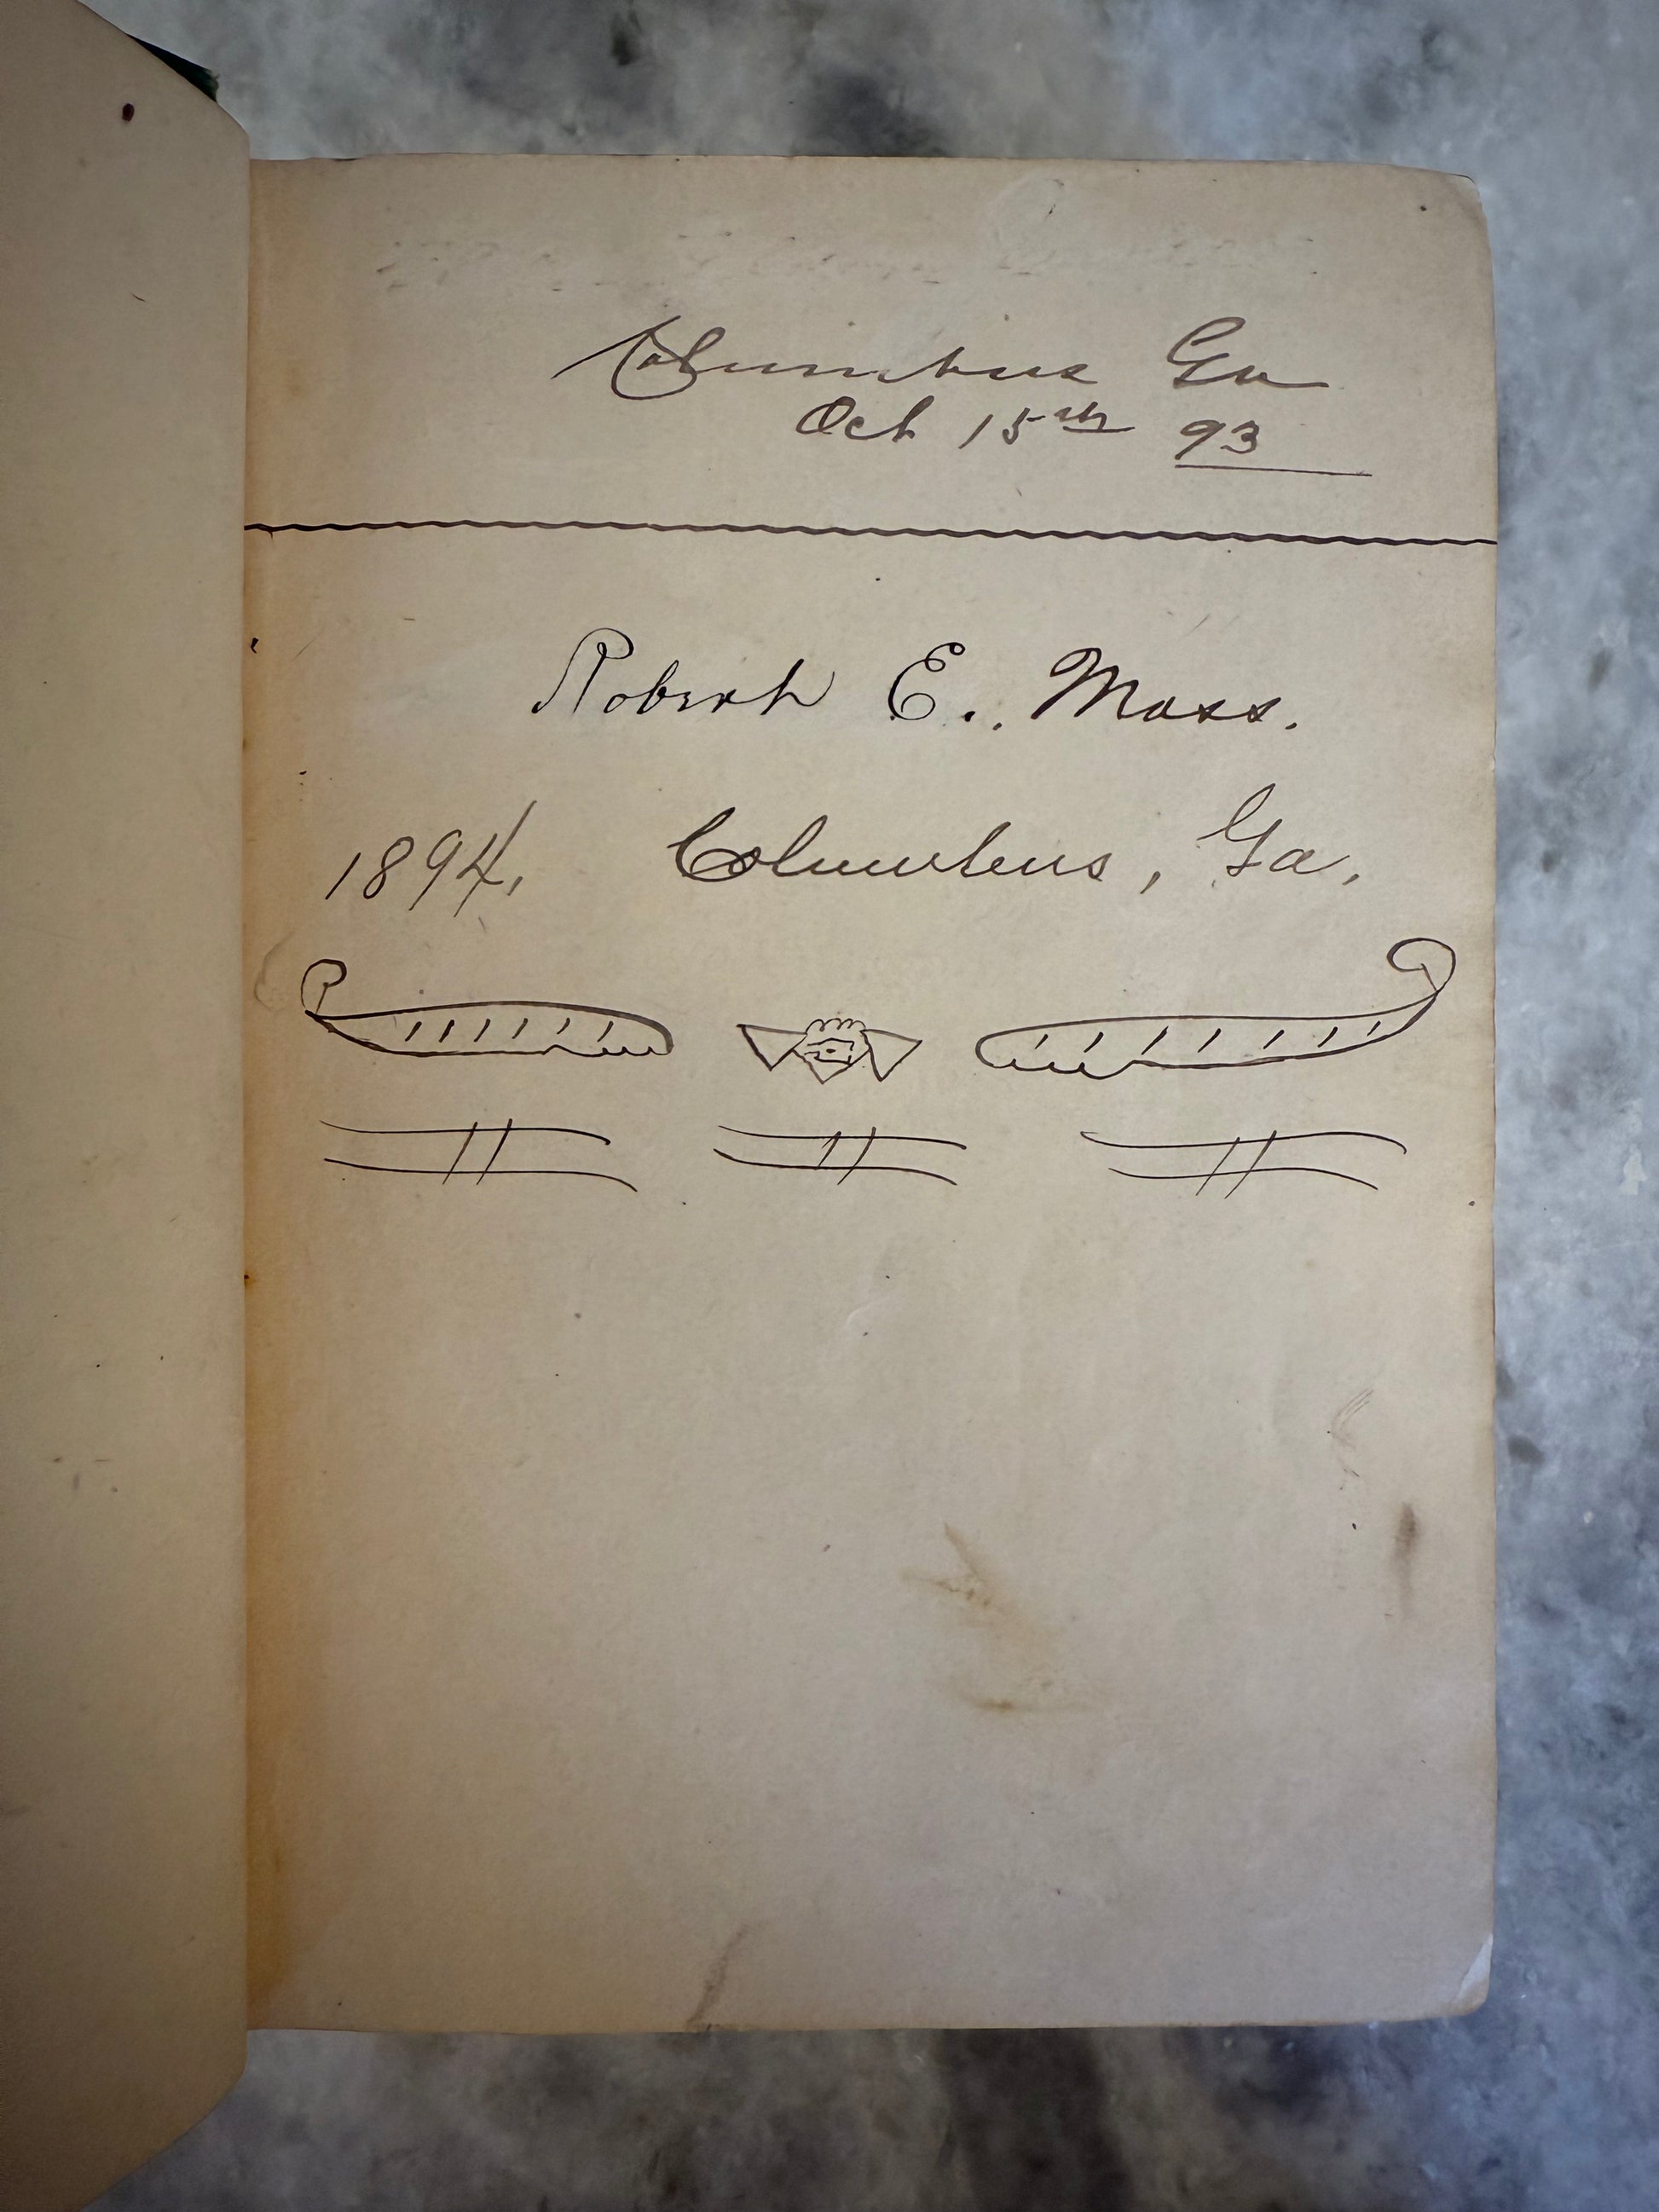 Columbus Ga
Oct 15th 93
Robert E. Moss.
1894, Columbus, Ga.